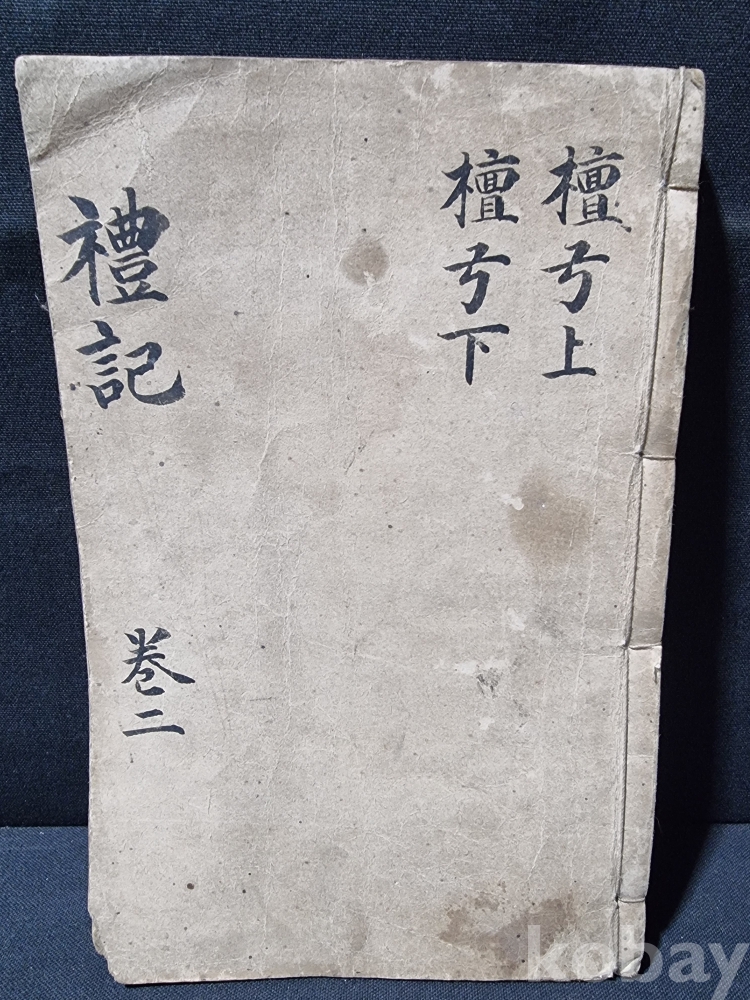 檀弓上
檀弓下
禮記
卷二
kobay